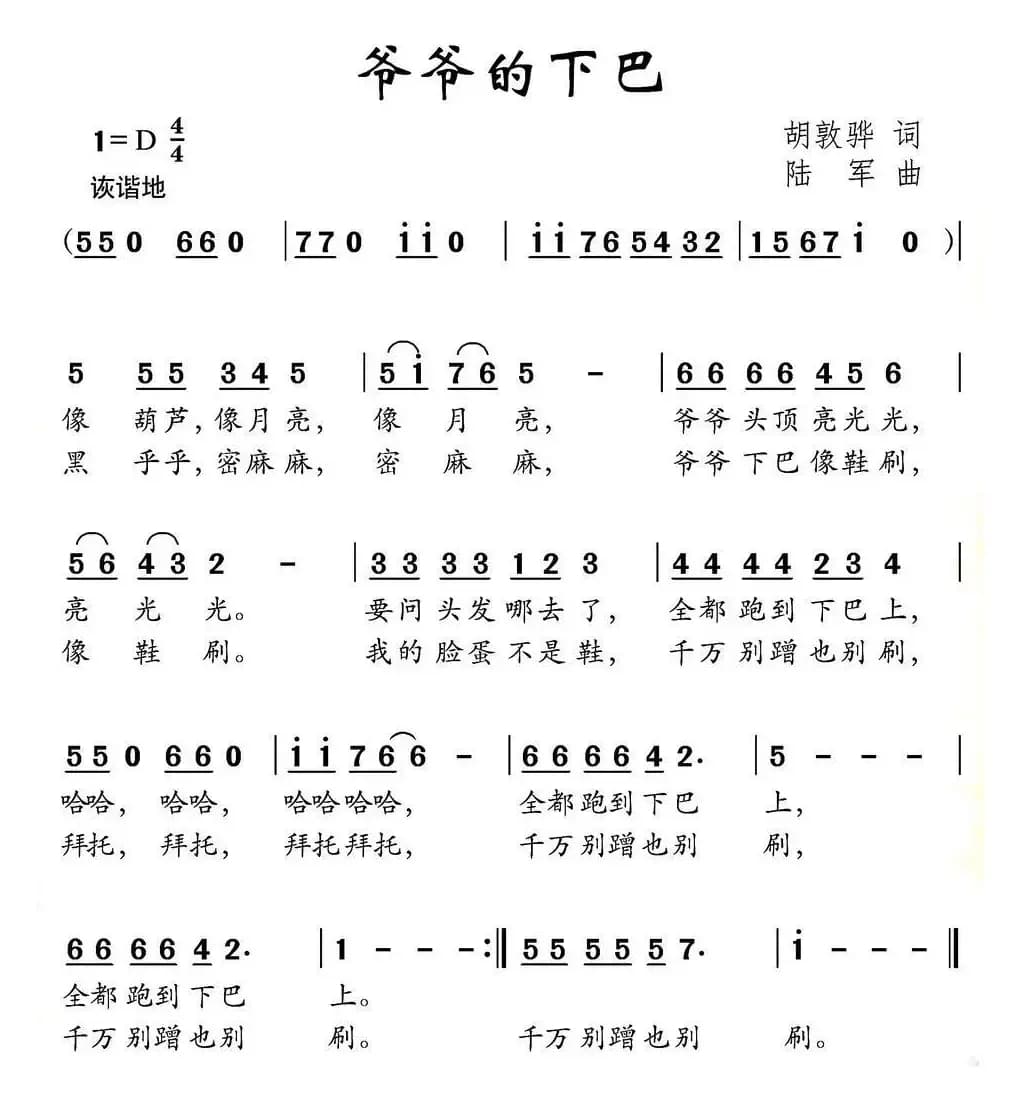 爷爷的下巴
1=D 4/4
胡敦骅 词
诙谐地
陆 军 曲
(550 660 |770 i̇i̇0 |i̇i̇76 5432 |1567i̇ 0 )|
5 55 345 |5i̇ 76 5 – |66 66 456 |
像 葫芦,像月亮, 像 月 亮, 爷爷头顶亮光光,
黑 乎乎,密麻麻, 密 麻 麻, 爷爷下巴像鞋刷,
56 43 2 – |33 33 123 |44 44 234 |
亮 光 光。 要问头发哪去了, 全都跑到下巴上,
像 鞋 刷。 我的脸蛋不是鞋, 千万别蹭也别刷,
550 660 |i̇i̇ 766 – |66 66 42· |5 – – – |
哈哈, 哈哈, 哈哈哈哈, 全都跑到下巴 上,
拜托, 拜托, 拜托拜托, 千万别蹭也别 刷,
66 66 42· |1 – – –:‖55 55 57· |i̇ – – –‖
全都跑到下巴 上。
千万别蹭也别 刷。 千万别蹭也别 刷。